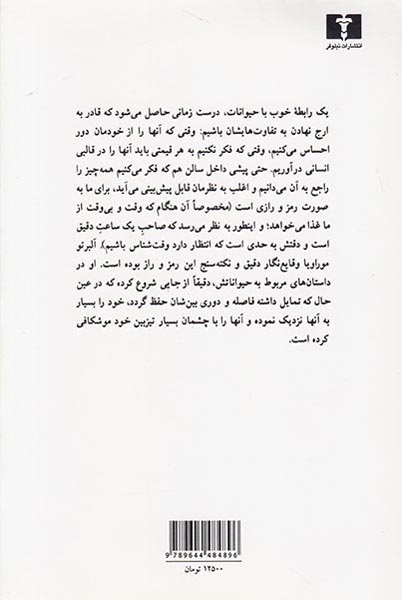 انتشارات نیلوفر
یک رابطهٔ خوب با حیوانات، درست زمانی حاصل می‌شود که قادر به
ارج نهادن به تفاوت‌هایشان باشیم: وقتی که آنها را از خودمان دور
احساس می‌کنیم، وقتی که فکر نکنیم به هر قیمتی باید آنها را در قالبی
انسانی درآوریم. حتی پیشی داخل سالن هم که فکر می‌کنیم همه‌چیز را
راجع به آن می‌دانیم و اغلب به نظرمان قابل پیش‌بینی می‌آید، برای ما به
صورت رمز و رازی است (مخصوصاً آن هنگام که وقت و بی‌وقت از
ما غذا می‌خواهد؛ و اینطور به نظر می‌رسد که صاحبِ یک ساعتِ دقیق
است و دقتش به حدی است که انتظار دارد وقت‌شناس باشیم). آلبرتو
موراویا وقایع‌نگار دقیق و نکته‌سنج این رمز و راز بوده است. او در
داستان‌های مربوط به حیواناتش، دقیقاً از جایی شروع کرده که در عین
حال که تمایل داشته فاصله و دوری بین‌شان حفظ گردد، خود را بسیار
به آنها نزدیک نموده و آنها را با چشمان بسیار تیزبین خود موشکافی
کرده است.
9 789644 484896
۱۲۵۰۰ تومان